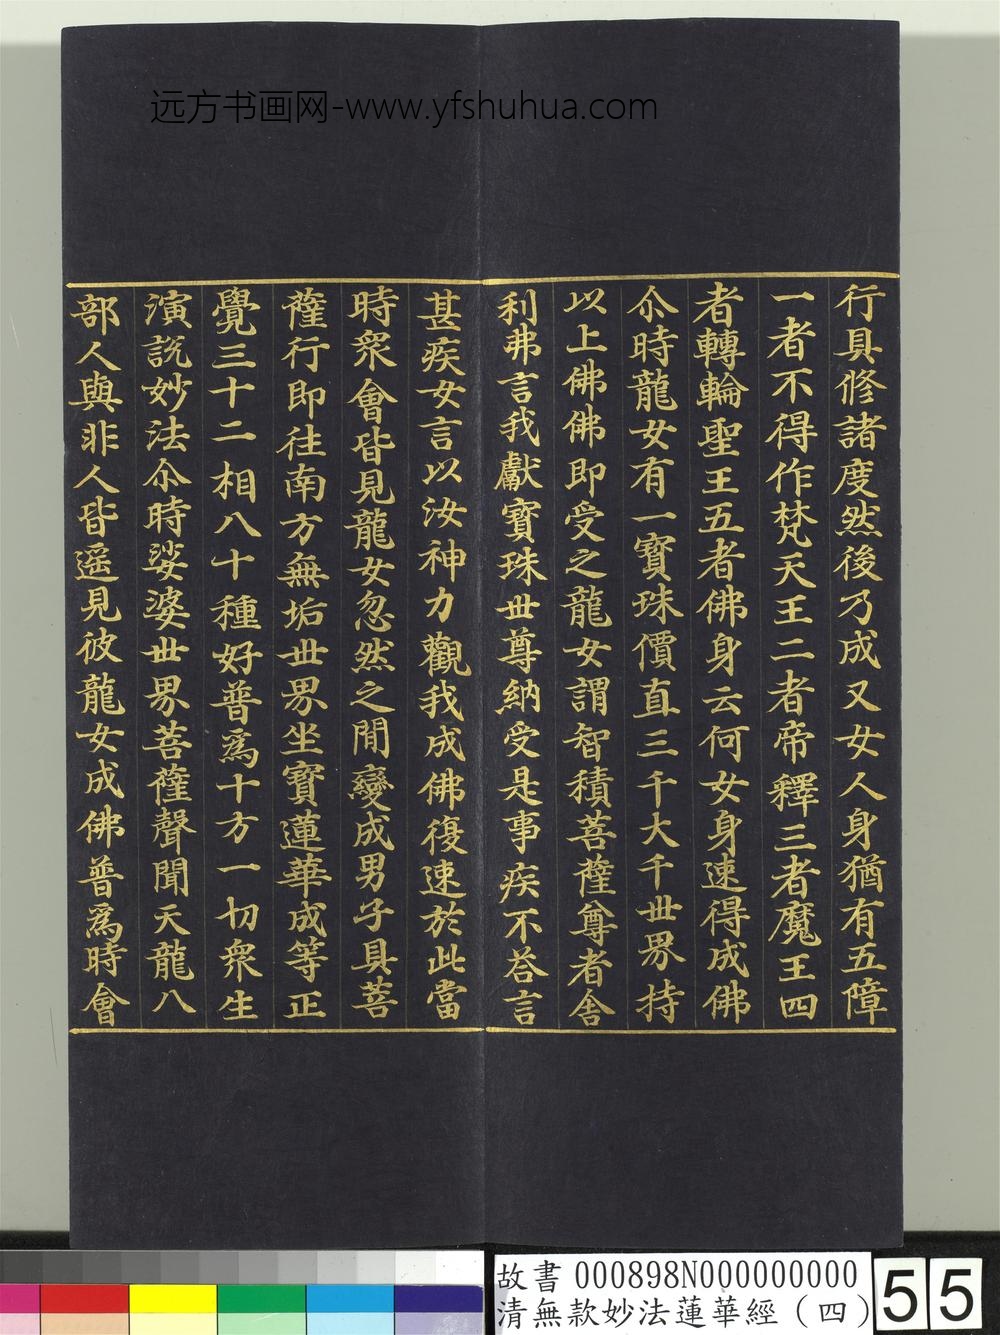 远方书画网-www.yfshuhua.com
行具修諸度然後乃成又女人身猶有五障
一者不得作梵天王二者帝釋三者魔王四
者轉輪聖王五者佛身云何女身速得成佛
尒時龍女有一寶珠價直三千大千世界持
以上佛佛即受之龍女謂智積菩薩尊者舍
利弗言我獻寶珠世尊納受是事疾不荅言
甚疾女言以汝神力觀我成佛復速於此當
時眾會皆見龍女忽然之間變成男子具菩
薩行即往南方無垢世界坐寶蓮華成等正
覺三十二相八十種好普為十方一切眾生
演說妙法尒時娑婆世界菩薩聲聞天龍八
部人與非人皆遥見彼龍女成佛普為時會
故書 000898N000000000
清無款妙法蓮華經（四）
55